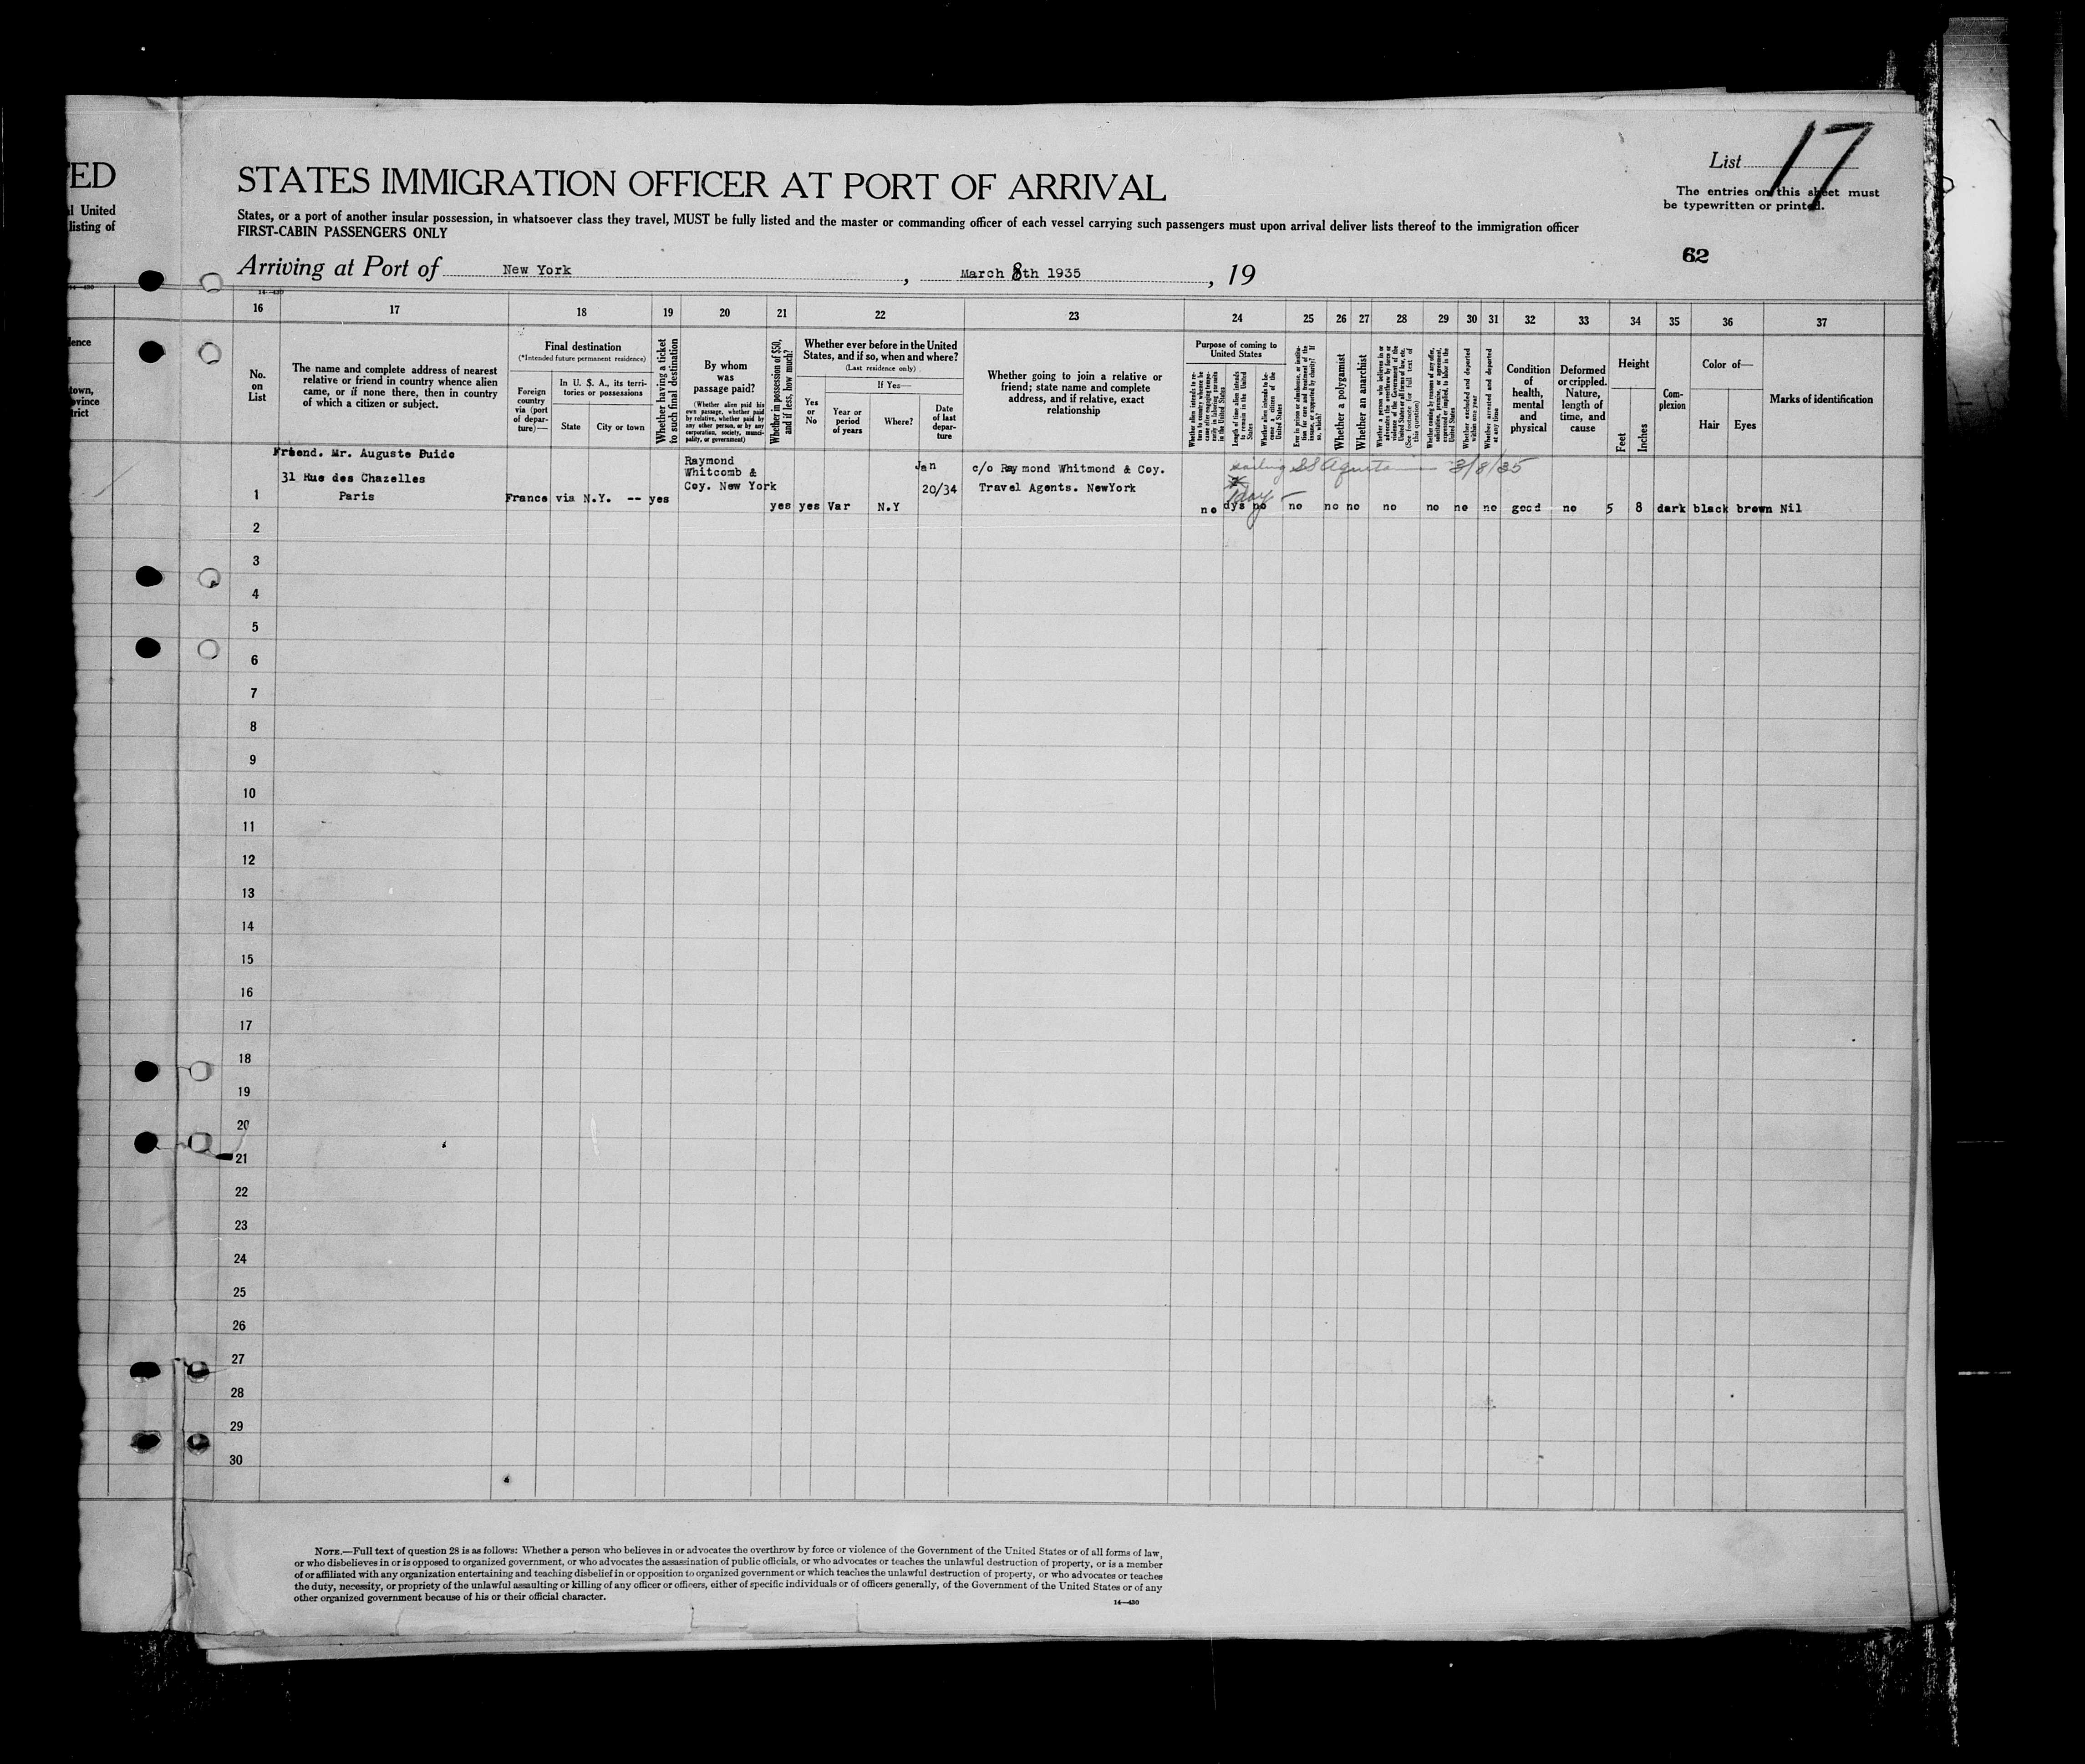 ED
STATES IMMIGRATION OFFICER AT PORT OF ARRIVAL
List 17
The entries on this sheet must
be typewritten or printed.
l United
listing of
States, or a port of another insular possession, in whatsoever class they travel, MUST be fully listed and the master or commanding officer of each vessel carrying such passengers must upon arrival deliver lists thereof to the immigration officer
FIRST-CABIN PASSENGERS ONLY
62
Arriving at Port of New York, March 8th 1935, 19
14—430
16 17 18 19 20 21 22 23 24 25 26 27 28 29 30 31 32 33 34 35 36 37
No. on List
The name and complete address of nearest
relative or friend in country whence alien
came, or if none there, then in country
of which a citizen or subject.
Final destination
(*Intended future permanent residence)
Foreign country via (port of departure)—
In U. S. A., its territories or possessions
State
City or town
Whether having a ticket to such final destination
By whom was passage paid?
(Whether alien paid his own passage, whether paid by relative, whether paid by any other person, or by any corporation, society, municipality, or government)
Whether in possession of $50, and if less, how much?
Whether ever before in the United
States, and if so, when and where?
(Last residence only)
If Yes—
Yes or No
Year or period of years
Where?
Date of last departure
Whether going to join a relative or
friend; state name and complete
address, and if relative, exact
relationship
Purpose of coming to United States
Whether alien intends to return to country whence he came after engaging temporarily in laboring pursuits in the United States
Length of time alien intends to remain in the United States
Whether alien intends to become a citizen of the United States
Ever in prison or almshouse, or institution for care and treatment of the insane, or supported by charity? If so, which?
Whether a polygamist
Whether an anarchist
Whether a person who believes in or advocates the overthrow by force or violence of the Government of the United States or all forms of law, etc. (See footnote for full text of this question)
Whether coming by reason of any offer, solicitation, promise, or agreement, expressed or implied, to labor in the United States
Whether excluded and deported within one year
Whether arrested and deported at any time
Condition of health, mental and physical
Deformed or crippled. Nature, length of time, and cause
Height
Feet
Inches
Complexion
Color of—
Hair
Eyes
Marks of identification
Friend. Mr. Auguste Duide
31 Rue des Chazelles
Paris
1
France via N.Y. -- yes
Raymond
Whitcomb &
Coy. New York
yes yes Var N.Y
Jan
20/34
c/o Raymond Whitmond & Coy.
Travel Agents. NewYork
sailing SS Aquitania 3/8/35
1 day
no dys no no no no no no no no good no 5 8 dark black brown Nil
2
3
4
5
6
7
8
9
10
11
12
13
14
15
16
17
18
19
20
21
22
23
24
25
26
27
28
29
30
NOTE.—Full text of question 28 is as follows: Whether a person who believes in or advocates the overthrow by force or violence of the Government of the United States or of all forms of law,
or who disbelieves in or is opposed to organized government, or who advocates the assassination of public officials, or who advocates or teaches the unlawful destruction of property, or is a member
of or affiliated with any organization entertaining and teaching disbelief in or opposition to organized government or which teaches the unlawful destruction of property, or who advocates or teaches
the duty, necessity, or propriety of the unlawful assaulting or killing of any officer or officers, either of specific individuals or of officers generally, of the Government of the United States or of any
other organized government because of his or their official character.
14—430